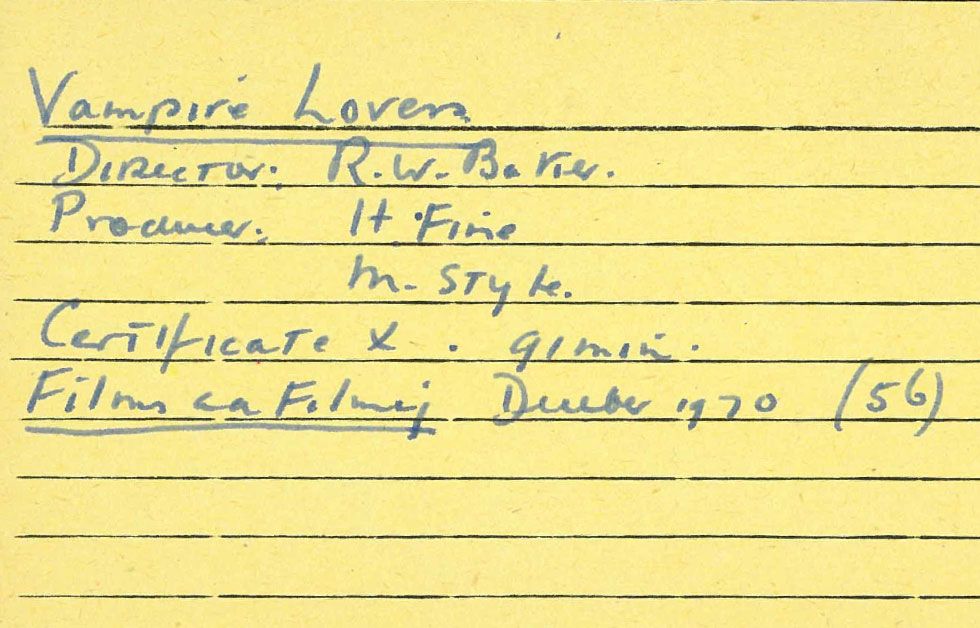 Vampire Lovers
Director: R.W. Baker.
Producer: H. Fine
M. Style.
Certificate X. 91min.
Films and Filming December 1970 (56)